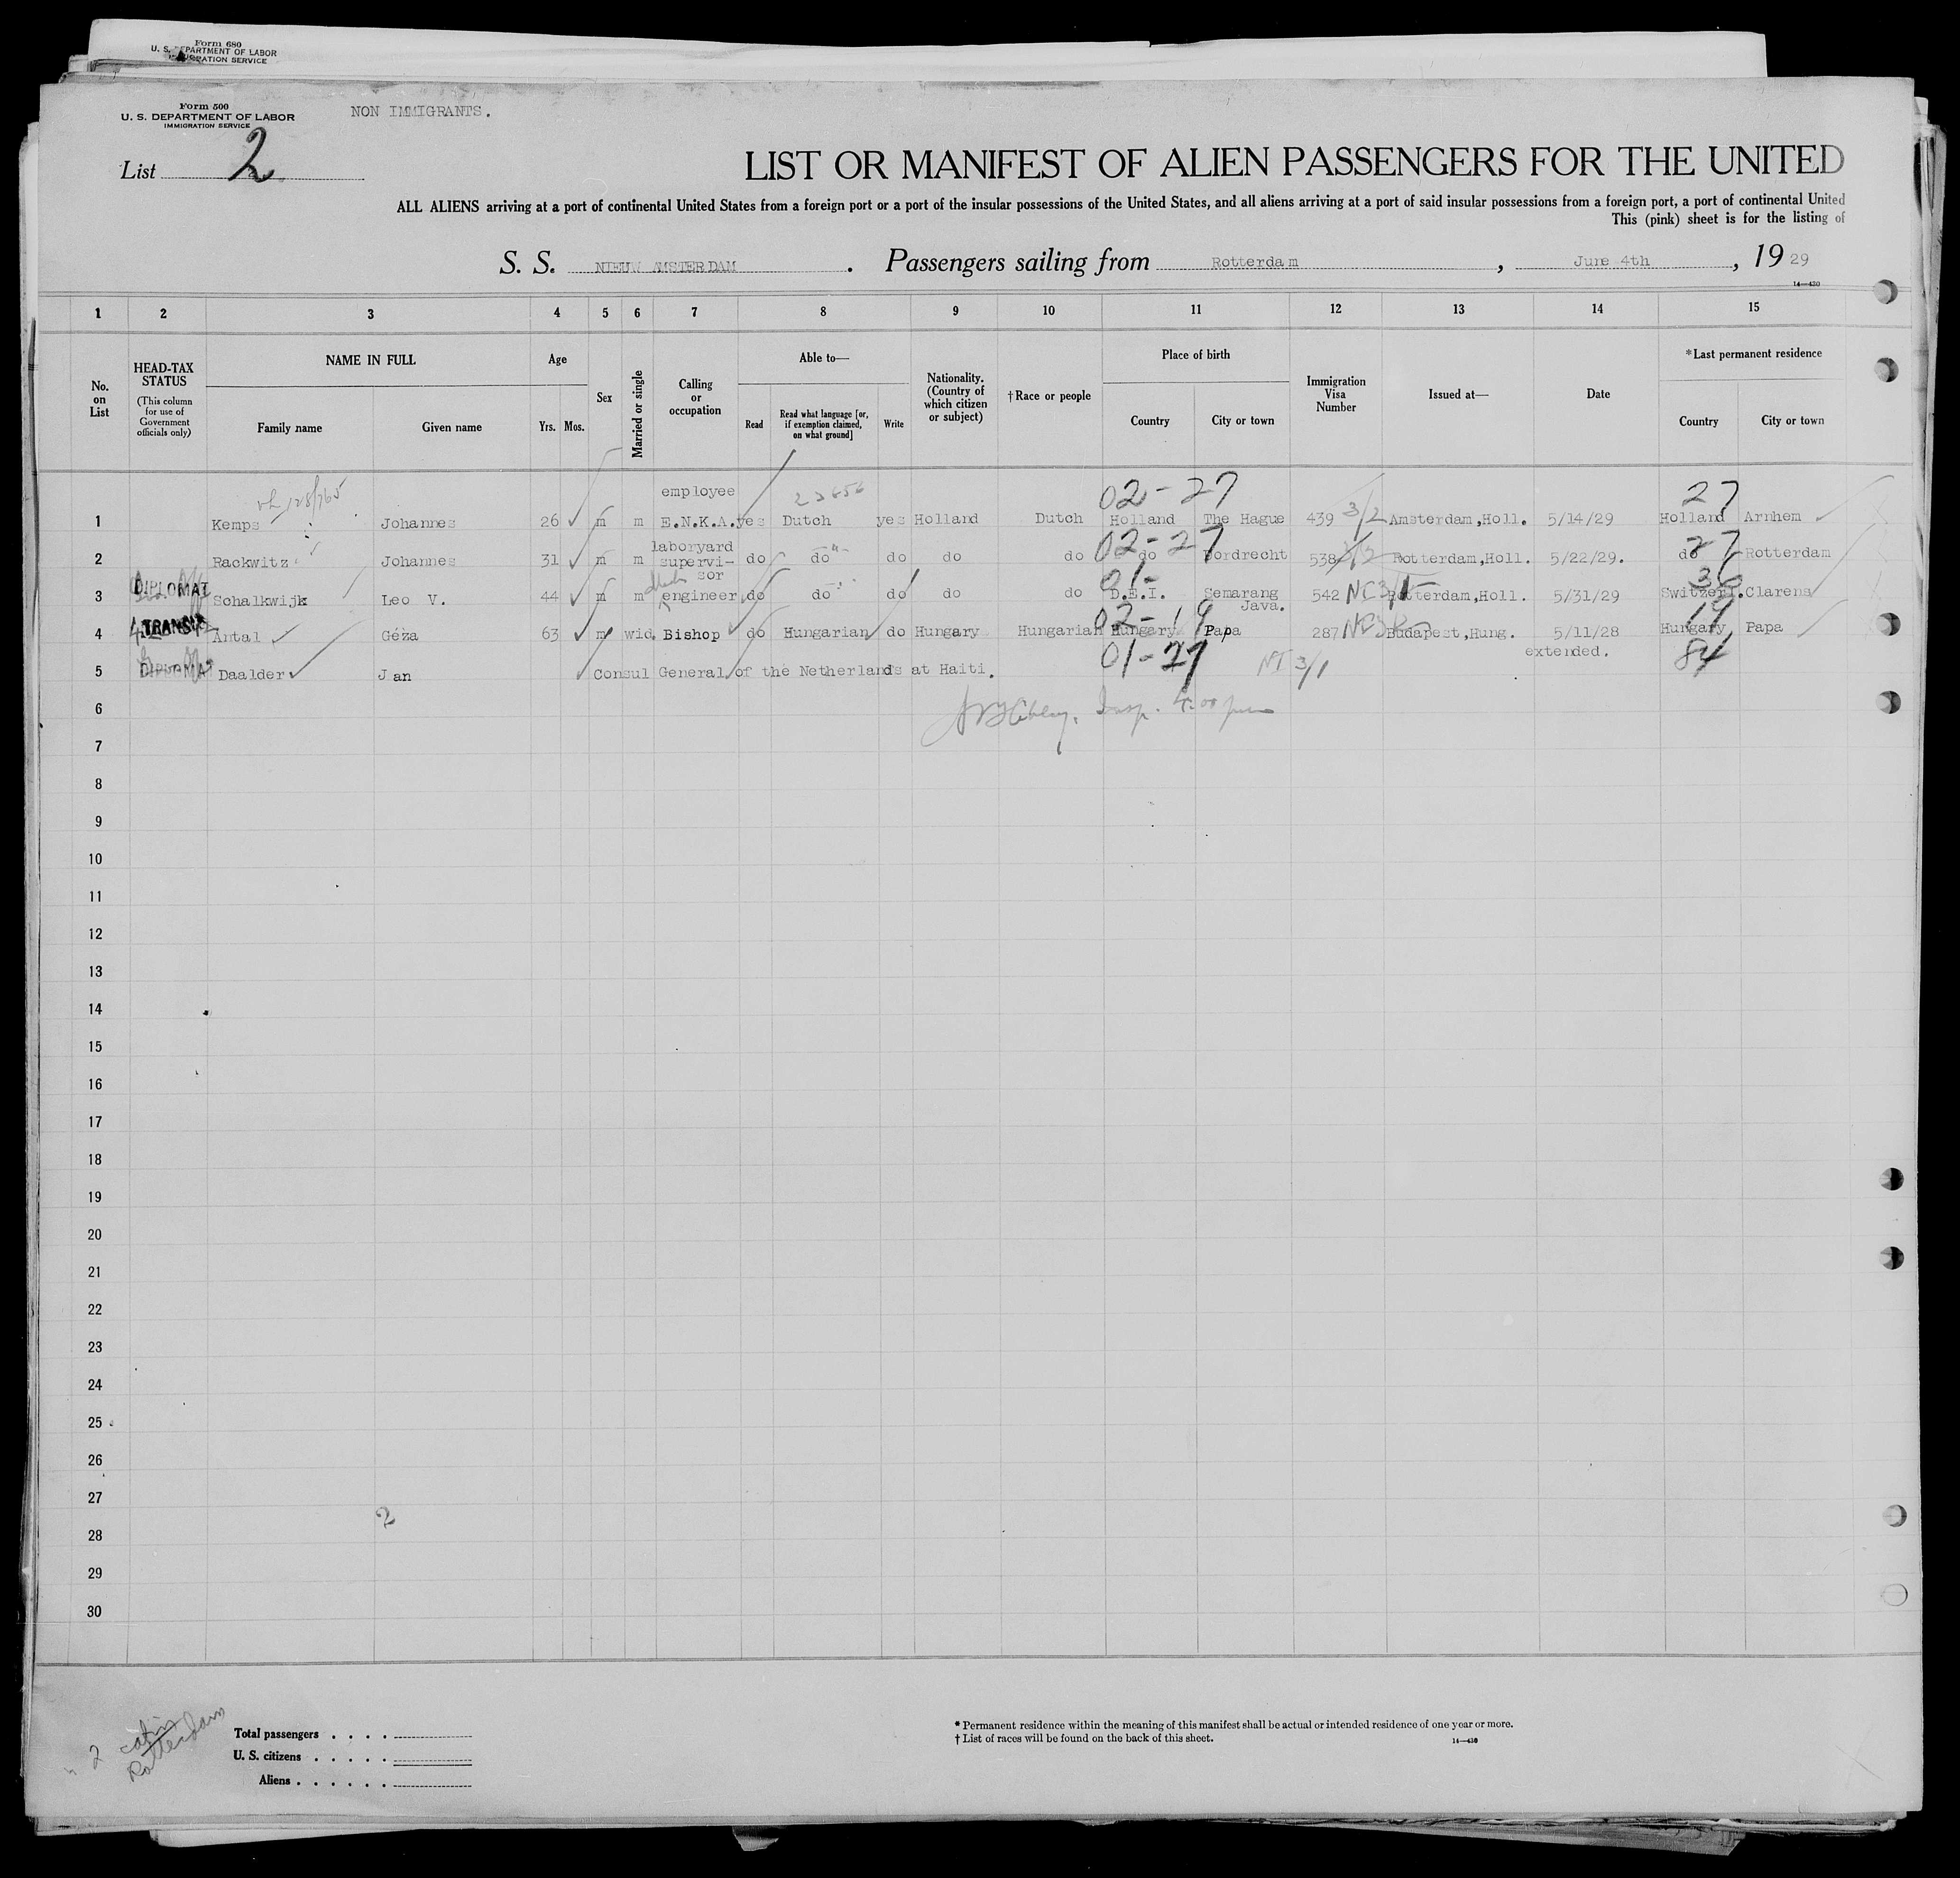 Form 680
U. S. DEPARTMENT OF LABOR
IMMIGRATION SERVICE
Form 500
U. S. DEPARTMENT OF LABOR
IMMIGRATION SERVICE
NON IMMIGRANTS.
List 2
LIST OR MANIFEST OF ALIEN PASSENGERS FOR THE UNITED
ALL ALIENS arriving at a port of continental United States from a foreign port or a port of the insular possessions of the United States, and all aliens arriving at a port of said insular possessions from a foreign port, a port of continental United
This (pink) sheet is for the listing of
S. S. NIEUW AMSTERDAM. Passengers sailing from Rotterdam, June 4th, 1929
14—430
1 2 3 4 5 6 7 8 9 10 11 12 13 14 15
No. on List
HEAD-TAX STATUS
(This column for use of Government officials only)
NAME IN FULL
Family name Given name
Age
Yrs. Mos.
Sex
Married or single
Calling or occupation
Able to—
Read
Read what language [or, if exemption claimed, on what ground]
Write
Nationality. (Country of which citizen or subject)
†Race or people
Place of birth
Country City or town
Immigration Visa Number
Issued at—
Date
*Last permanent residence
Country City or town
02-27 27
employee
1 Kemps Johannes 26 m m E.N.K.A. yes Dutch yes Holland Dutch Holland The Hague 439 3/2 Amsterdam,Holl. 5/14/29 Holland Arnhem
02-27 27
laboryard
2 Rackwitz Johannes 31 m m supervi- do do do do do do Dordrecht 538 3/2 Rotterdam,Holl. 5/22/29. do Rotterdam
sor
01- 36
3 DIPLOMAT Schalkwijk Leo V. 44 m m engineer do do do do do D.E.I. Semarang 542 NC 3/1 Rotterdam,Holl. 5/31/29 Switzerl. Clarens
Java.
02-19 19
4 TRANSIT Antal Géza 63 m wid. Bishop do Hungarian do Hungary Hungarian Hungary Papa 287 Budapest,Hung. 5/11/28 Hungary Papa
extended.
01-27 84
5 DIPLOMAT Daalder Jan Consul General of the Netherlands at Haiti. 3/1
6 Insp. 4:00 pm
7
8
9
10
11
12
13
14
15
16
17
18
19
20
21
22
23
24
25
26
27
2
28
29
30
2 cabin
Rotterdam
Total passengers . . . .
U. S. citizens . . . . .
Aliens . . . . . .
* Permanent residence within the meaning of this manifest shall be actual or intended residence of one year or more.
† List of races will be found on the back of this sheet.
14—430